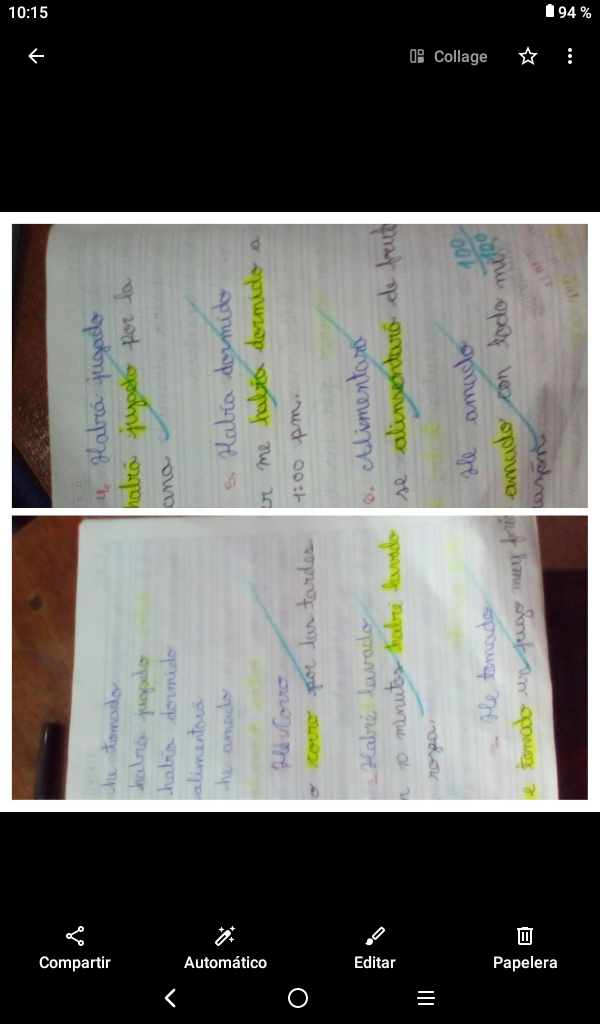 10:15
94 %
Collage
4. Habrá jugado
habrá jugado por la
ana
5. Había dormido
r me había dormido a
1:00 pm.
6. Alimentara
se alimentará de frut
100
100
He amado
amado con todo mi
razón
he tomado
habrá jugado
había dormido
alimentará
he amado
Corro
o corro por las tardes
Habré lavado
n 10 minutos habré lavado
ropa.
He tomado
e tomado un jugo muy frí
Compartir
Automático
Editar
Papelera